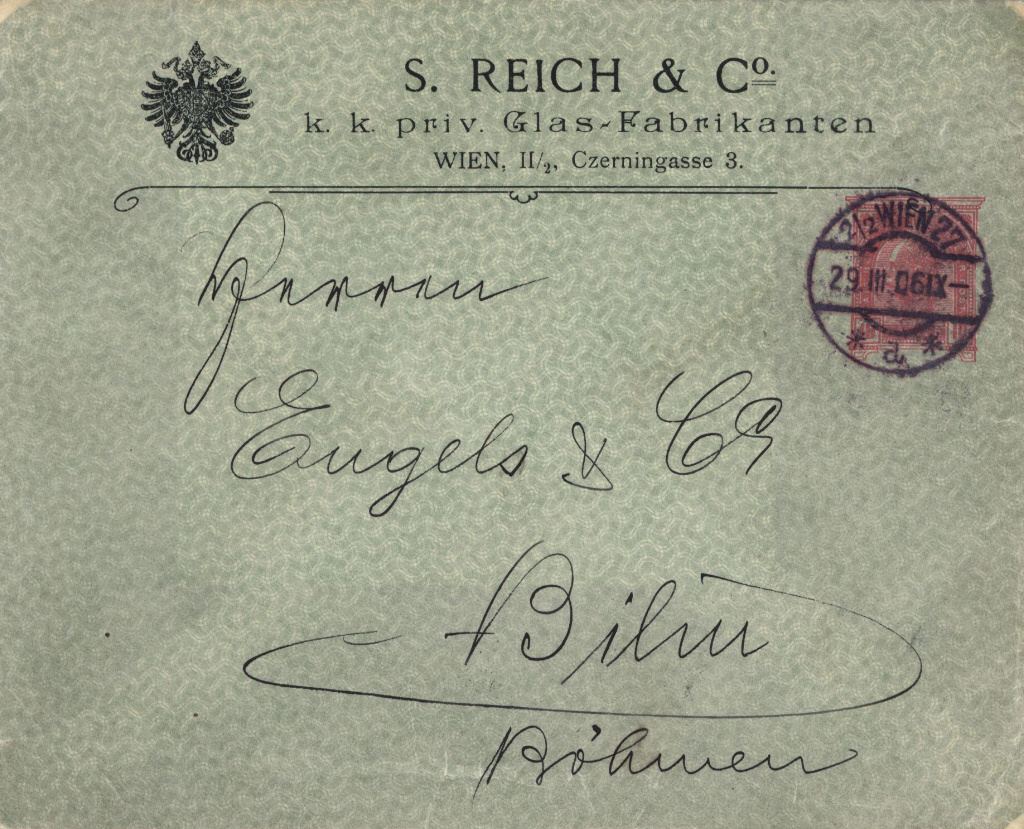 S. REICH & Co.
k. k. priv. Glas-Fabrikanten
WIEN, II/2, Czerningasse 3.
2/2 WIEN 27
29. III. 06 IX–
* a *
Herren
Engels & Co
Bilin
Böhmen